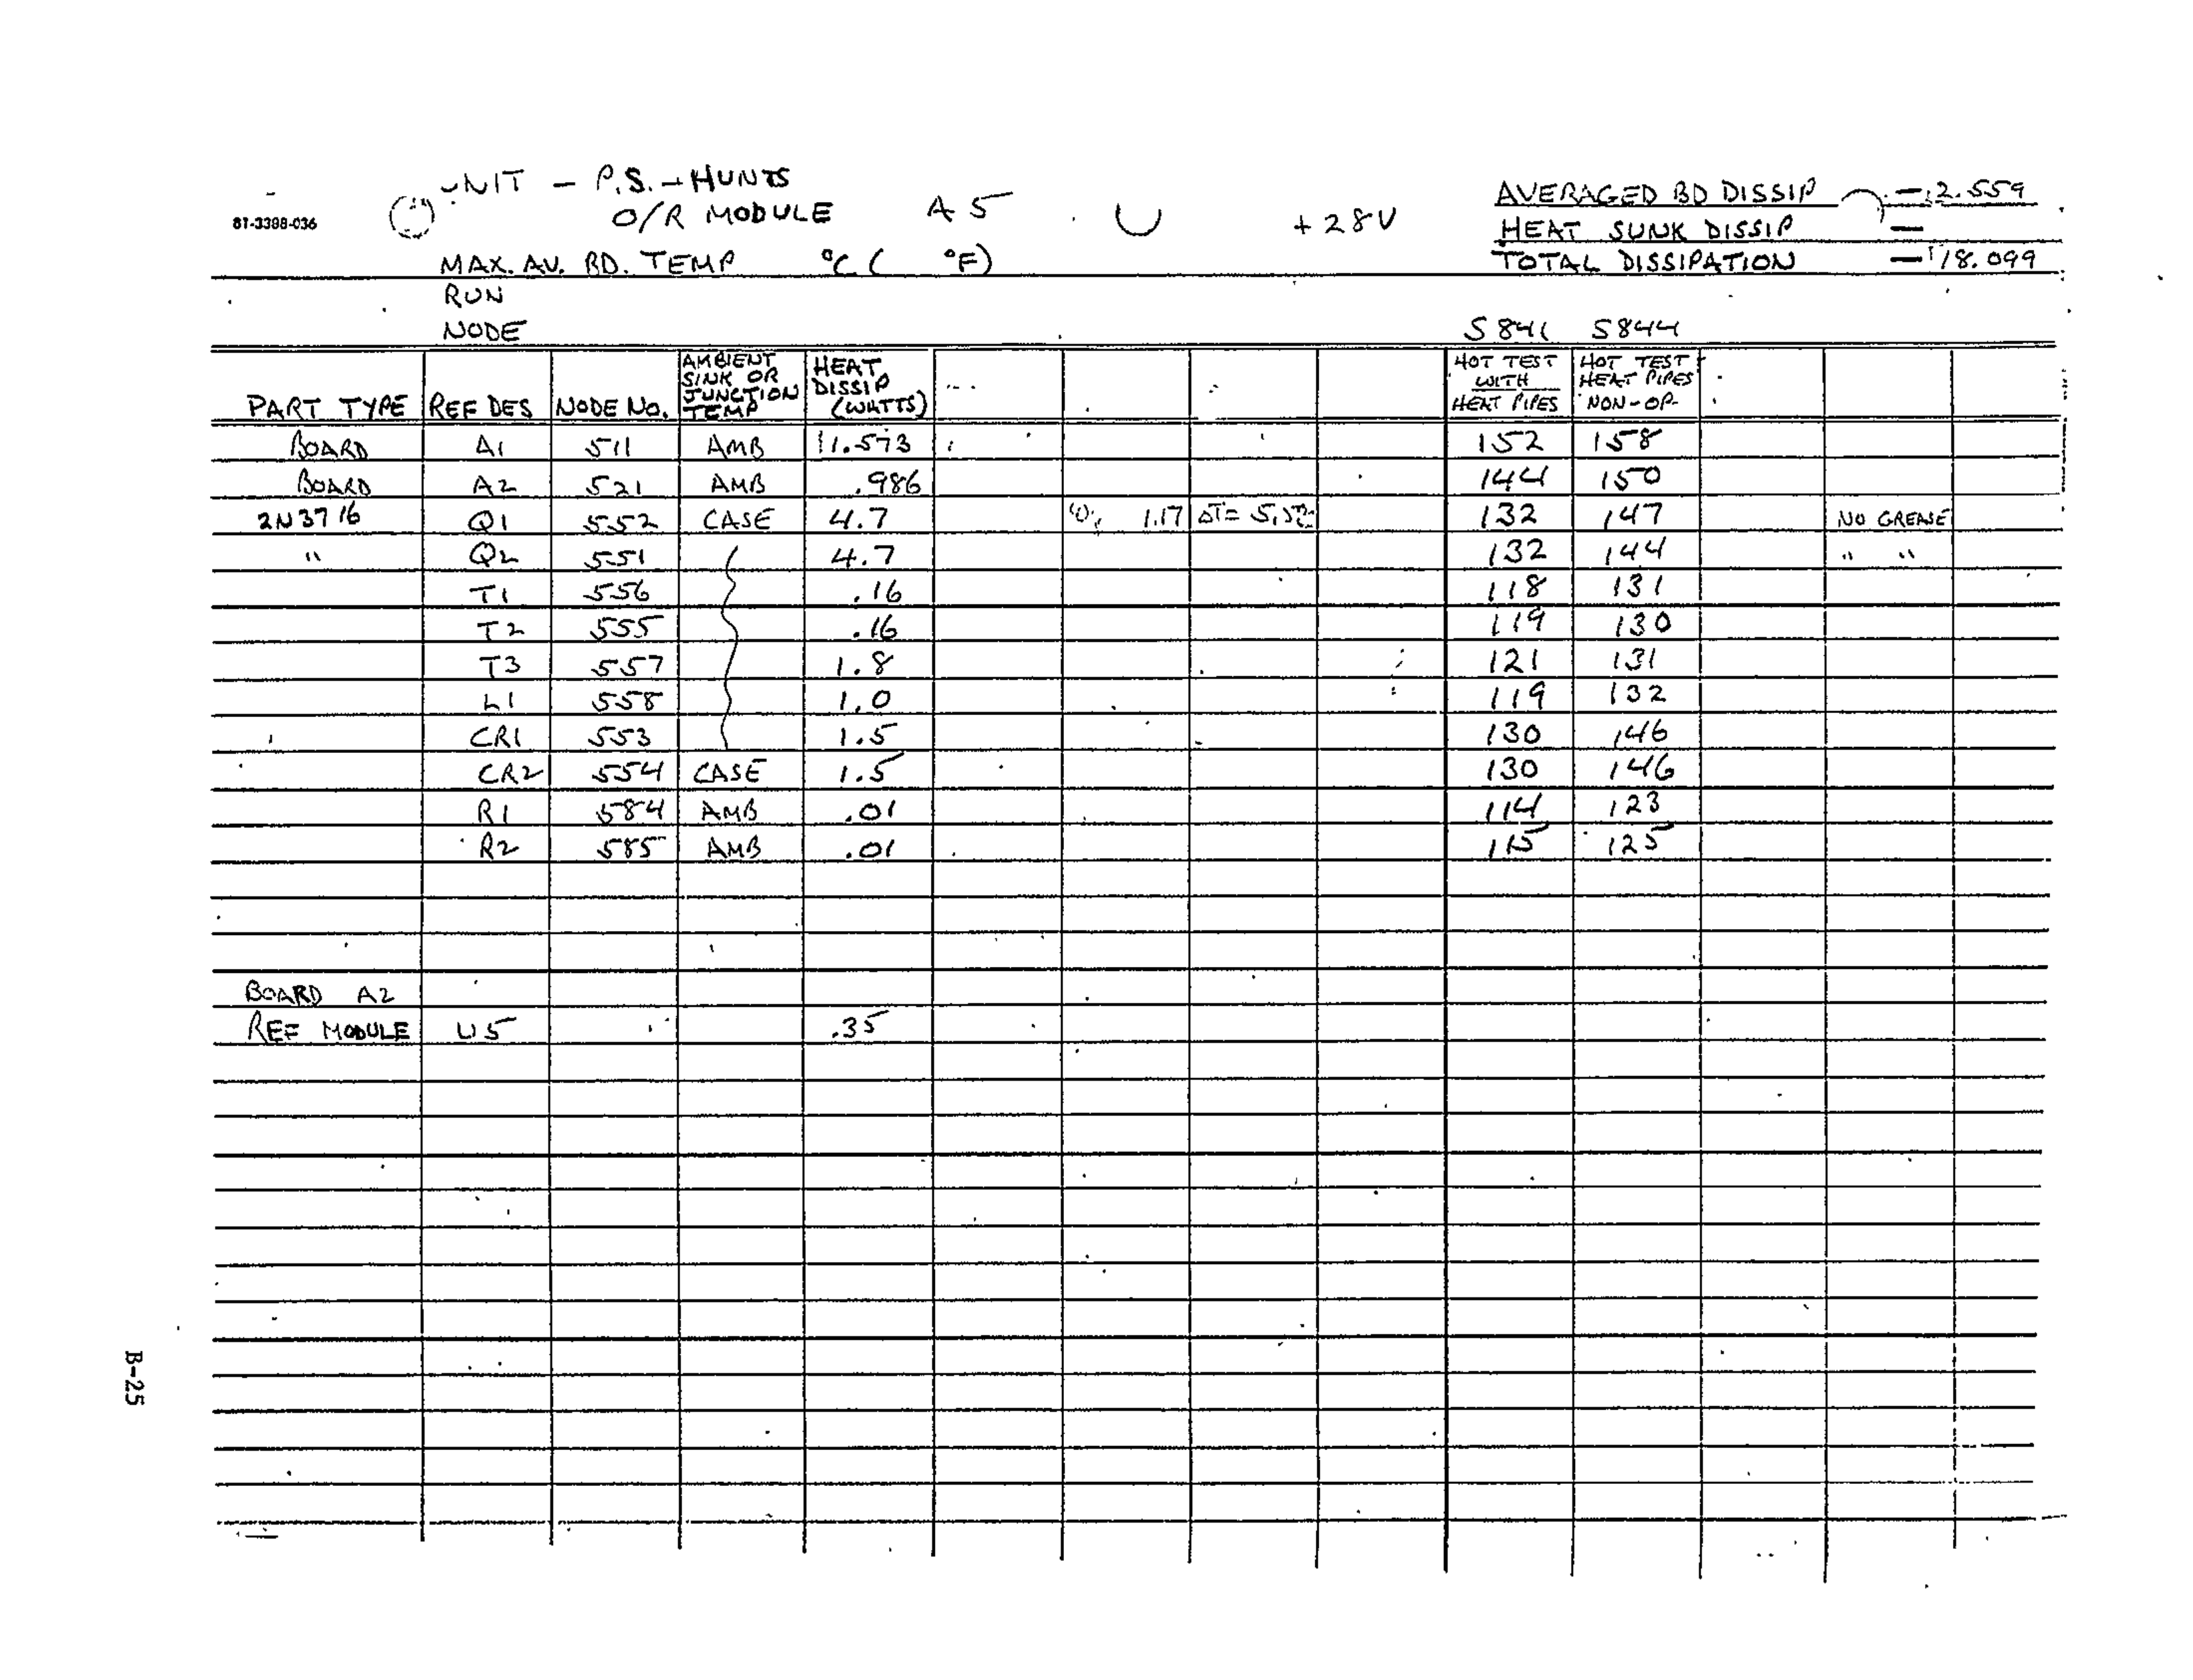 81-3398-036
UNIT - P.S. - HUNTS
O/R MODULE A5 U +28V
AVERAGED BD DISSIP - 2.559
HEAT SUNK DISSIP -
MAX. AV. BD. TEMP °C ( °F)
TOTAL DISSIPATION - 18.099
RUN
NODE S841 S844
PART TYPE REF DES NODE NO. AMBIENT SINK OR JUNCTION TEMP HEAT DISSIP (WATTS) HOT TEST WITH HEAT PIPES HOT TEST HEAT PIPES NON-OP-
BOARD A1 511 AMB 11.573 152 158
BOARD A2 521 AMB .986 144 150
2N3716 Q1 552 CASE 4.7 1.17 ΔT= 132 147 NO GREASE
" Q2 551 4.7 132 144 " "
T1 556 .16 118 131
T2 555 .16 119 130
T3 557 1.8 121 131
L1 558 1.0 119 132
CR1 553 1.5 130 146
CR2 554 CASE 1.5 130 146
R1 584 AMB .01 114 123
R2 585 AMB .01 115 125
BOARD A2
REF MODULE U5 .35
B-25